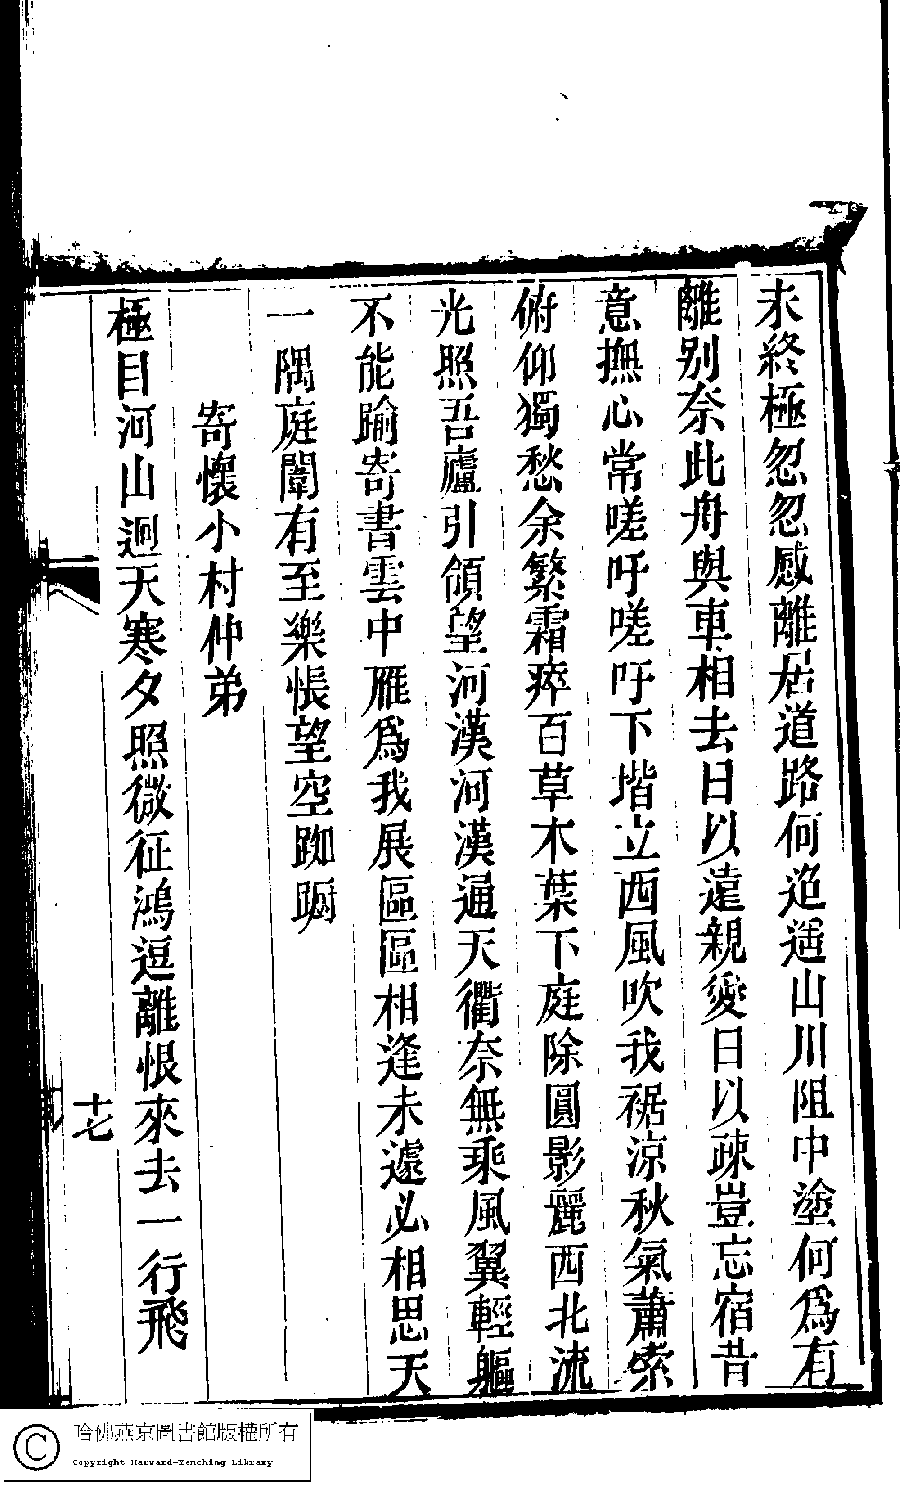 未終極忽忽感離居道路何迢遞山川阻中塗何爲有
離別奈此舟與車相去日以遠親愛日以疎豈忘宿昔
意撫心常嗟吁嗟吁下堦立西風吹我裾涼秋氣蕭索
俯仰獨愁余繁霜瘁百草木葉下庭除圓影麗西北流
光照吾廬引領望河漢河漢通天衢奈無乘風翼輕軀
不能踰寄書雲中雁爲我展區區相逢未遽必相思天
一隅庭闈有至樂悵望空踟躕
寄懷小村仲弟
極目河山迥天寒夕照微征鴻逗離恨來去一行飛
十七
哈佛燕京圖書館版權所有
Copyright Harvard-Yenching Library